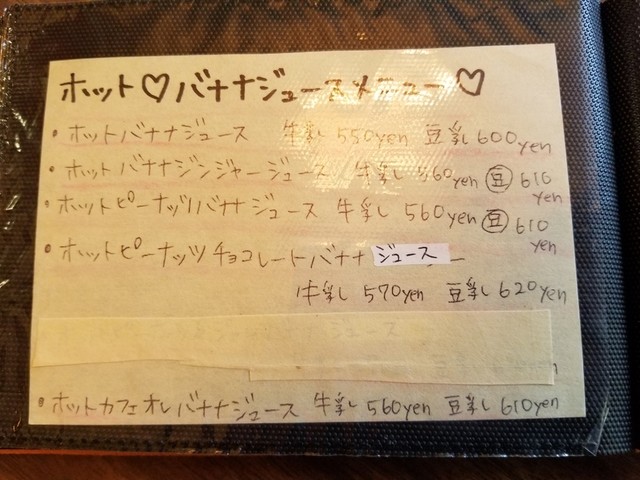 ホット♡バナナジュースメニュー♡
・ホットバナナジュース 牛乳 550yen 豆乳 600yen
・ホットバナナジンジャージュース 牛乳 560yen 豆 610yen
・ホットピーナッツバナナジュース 牛乳 560yen 豆 610yen
・ホットピーナッツチョコレートバナナジュース
牛乳 570yen 豆乳 620yen
・ホットカフェオレバナナジュース 牛乳 560yen 豆乳 610yen